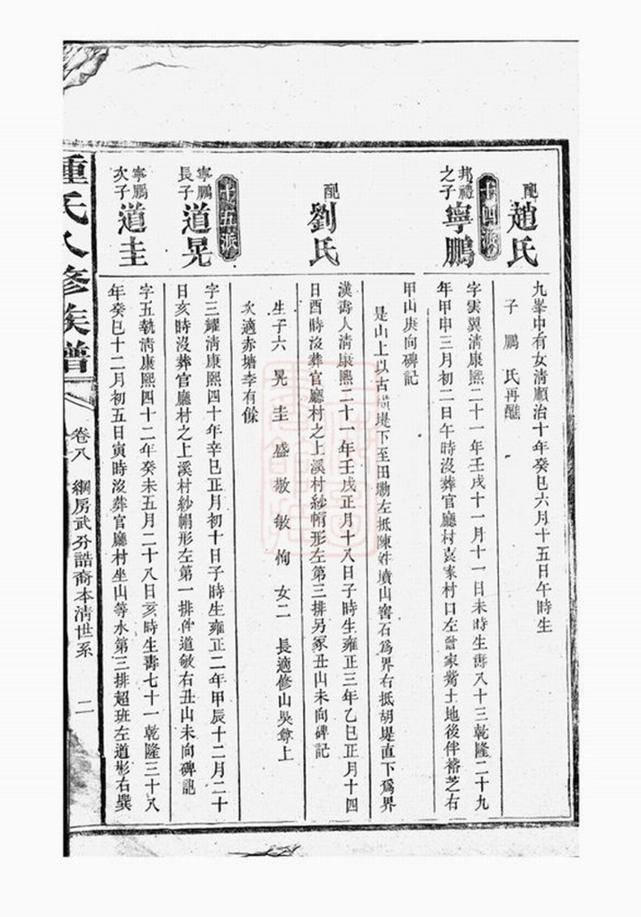 配趙氏
九峯中有女清順治十年癸巳六月十五日午時生
子 鵬 氏再醮
十四派
邦禮之子寧鵬
字雲翼清康熙二十一年壬戌十一月十一日未時生壽八十三乾隆二十九
年甲申三月初二日午時沒葬官廳村袁家村口左曾家嘴土地後伴
甲山庚向碑記
是山上以古橫堤下至田塝左抵陳姓墳山窖石爲界右抵胡堤直下爲界
配劉氏
漢壽人清康熙二十一年壬戌正月十八日子時生雍正三年乙巳正月十四
日酉時沒葬官廳村之上溪村紗帽形左第三排另冢丑山未向碑記
生子六 晃 圭 盛 敬 敏 恂 女二 長適修山吳尊上
次適赤塘李有餘
十五派
寧鵬長子道晃
字三耀清康熙四十年辛巳正月初十日子時生雍正二年甲辰十二月二十
日亥時沒葬官廳村之上溪村紗帽形左第一排伴道敏右丑山未向碑記
寧鵬次子道圭
字五執清康熙四十二年癸未五月二十八日亥時生壽七十一乾隆三十八
年癸巳十二月初五日寅時沒葬官廳村坐山等水第三排超班左道彤右巽
鍾氏八修族譜
卷八 綱房武分誥裔本清世系 二